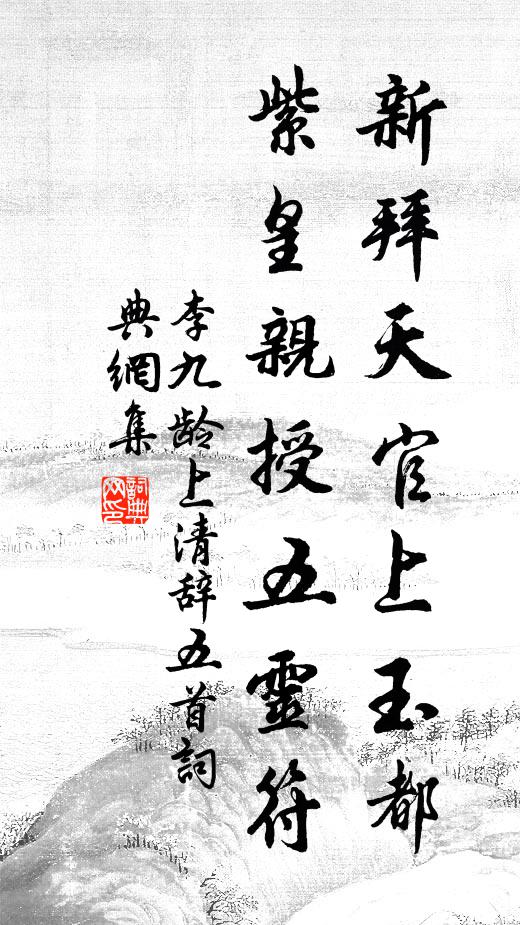 新拜天官上玉都
紫皇親授五靈符
李九龄上清辞五首詞
典網集
詞典网印